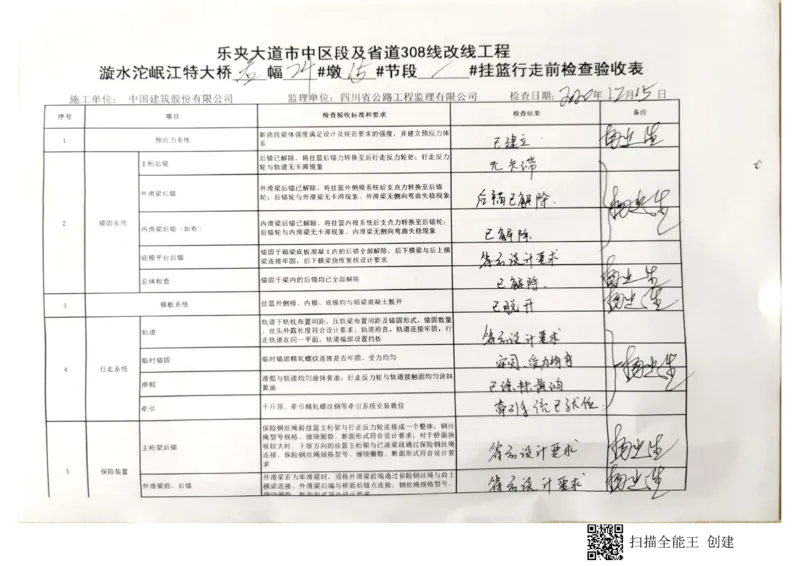 乐夹大道市中区段及省道308线改线工程
漩水沱岷江特大桥 右 幅 24 #墩 15 #节段 / #挂篮行走前检查验收表
施工单位: 中国建筑股份有限公司 监理单位: 四川省公路工程监理有限公司 检查日期: 2020年12月15日
序号 项目 检查验收标准和要求 检查结果 备注
1 预应力系统 新浇段梁体强度满足设计及规范要求的强度,并建立预应力体系 已建立
2 锚固系统
主桁后锚 后锚已解除,将挂篮后锚力转换至后行走反力轮处;行走反力轮与轨道无卡滞现象 无卡滞
外滑梁后锚 外滑梁后锚已解除,将挂篮外侧模系统后支点力转换至后锚轮;后锚轮与外滑梁无卡滞现象、外滑梁无侧向弯曲失稳现象 后锚已解除.
内滑梁后锚(如有) 内滑梁后锚已解除,将挂篮内模系统后支点力转换至后锚轮,后锚轮与内滑梁无卡滞现象、内滑梁无侧向弯曲失稳现象 已解除.
底模平台后锚 锚固于箱梁底板混凝土内的后锚全部解除,后下横梁与后上横梁连接牢固,后下横梁挠度复核设计要求 符合设计要求
总体检查 锚固于梁内的后锚均已全部解除 已解除.
3 模板系统 挂篮外侧模、内模、底模均与箱梁混凝土脱开 已脱开
4 行走系统
轨道 轨道下轨枕布置间距、压轨梁布置间距及锚固形式、锚固数量、丝头外露长度符合设计要求;轨道顺直,轨道连接牢固,行走轨道在同一平面,轨道端部设置挡板 符合设计要求
临时锚固 临时锚固精轧螺纹连接是否牢固、受力均匀 牢固、受力均匀
滑船 滑船与轨道均匀涂抹黄油;行走反力轮与轨道接触面均匀涂抹黄油 已涂抹黄油
牵引 千斤顶、牵引精轧螺纹钢等牵引系统安装就位 牵引系统已就位
5 保险装置
主桁架后锚 保险钢丝绳将挂篮主桁架与行走反力轮连接成一个整体,钢丝绳型号规格、缠绕圈数、断面形式符合设计要求;对于桥面纵坡较大时、下坡方向的挂篮主桁架与已浇梁段通过保险钢丝绳连接,保险钢丝绳规格型号、缠绕圈数、断面形式符合设计要求 符合设计要求
外滑梁前、后锚 外滑梁若为单滑梁时,须将外滑梁前端通过保险钢丝绳与前上横梁连接、外滑梁后端与桥面后锚点连接;钢丝绳规格型号、缠绕圈数、断面形式符合设计要求 符合设计要求
扫描全能王 创建